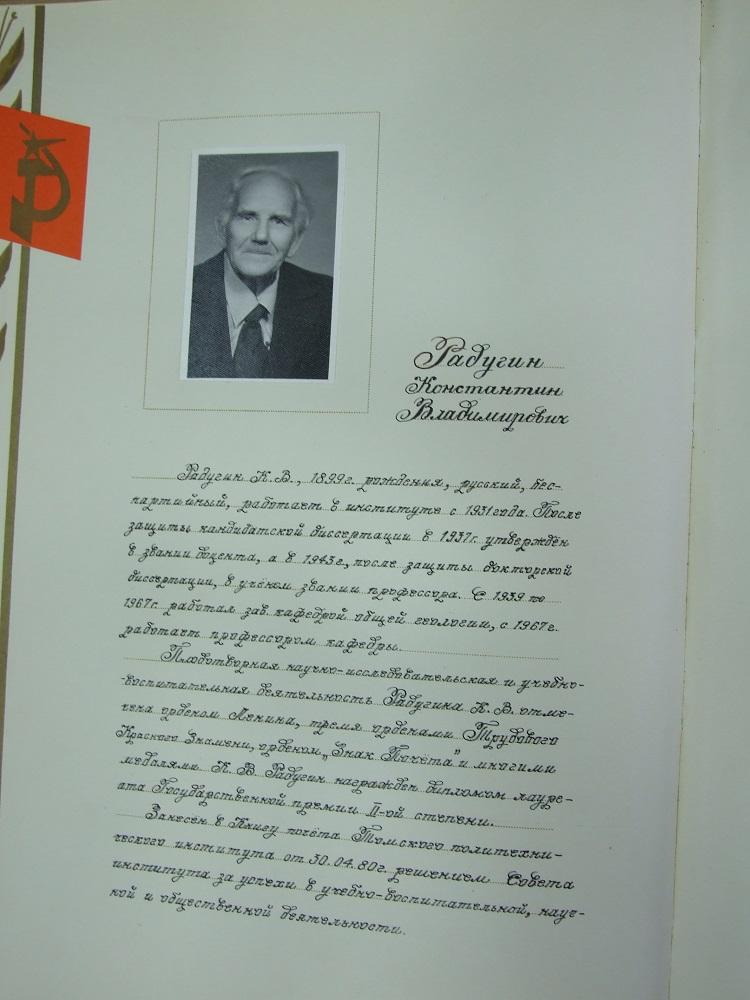 Радугин
Константин
Владимирович
Радугин К.В., 1899г. рождения, русский, бес-
партийный, работает в институте с 1931 года. После
защиты кандидатской диссертации в 1937г. утверждён
в звании доцента, а в 1943 г., после защиты докторской
диссертации, в учёном звании профессора. С 1939 по
1967г. работал зав. кафедрой общей геологии, с 1967г.
работает профессором кафедры.
Плодотворная научно-исследовательская и учебно-
-воспитательная деятельность Радугина К.В. отме-
чена орденом Ленина, тремя орденами Трудового
Красного Знамени, орденом „Знак Почёта" и многими
медалями. К.В. Радугин награждён дипломом лауре-
ата Государственной премии II-ой степени.
Занесён в Книгу почёта Томского политехни-
ческого института от 30.04.80г. решением Совета
института за успехи в учебно-воспитательной, науч-
ной и общественной деятельности.